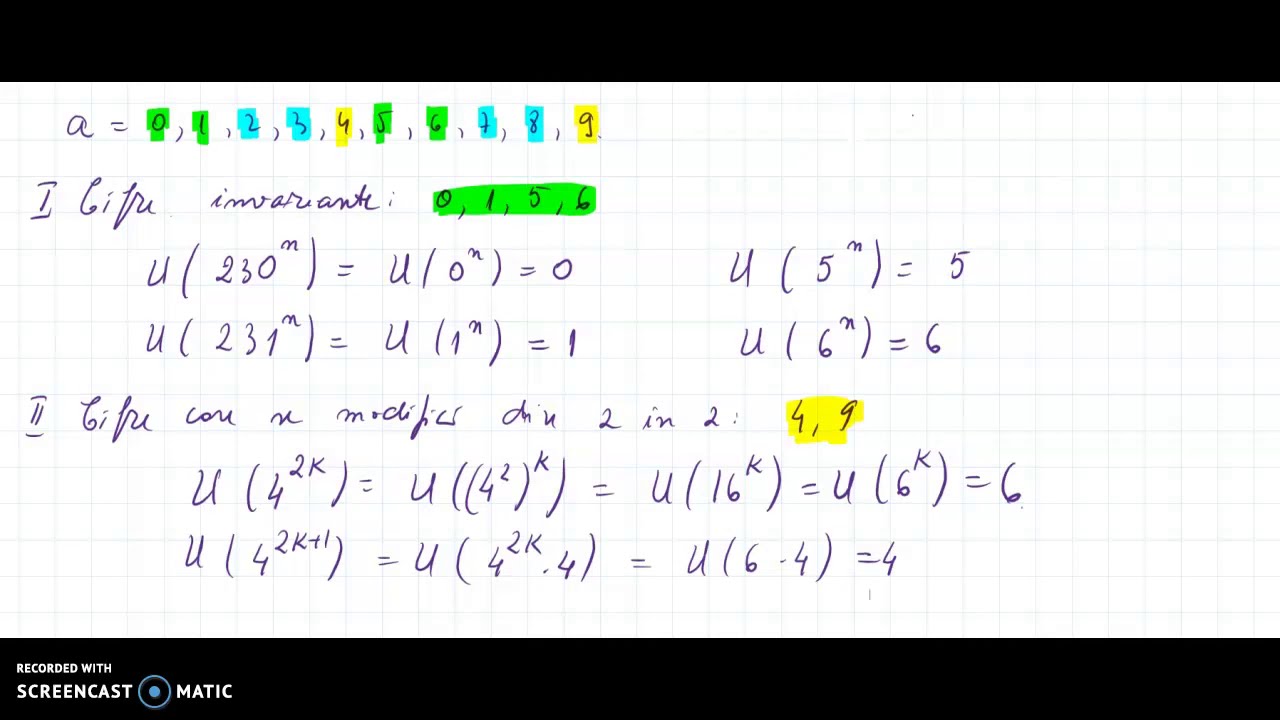 a = 0, 1, 2, 3, 4, 5, 6, 7, 8, 9.
I Cifre invariante: 0, 1, 5, 6
U(230ⁿ) = U(0ⁿ) = 0 U(5ⁿ) = 5
U(231ⁿ) = U(1ⁿ) = 1 U(6ⁿ) = 6
II Cifre care se modifică din 2 in 2: 4, 9
U(4^{2K}) = U((4²)^K) = U(16^K) = U(6^K) = 6
U(4^{2K+1}) = U(4^{2K}·4) = U(6·4) = 4
RECORDED WITH
SCREENCAST MATIC